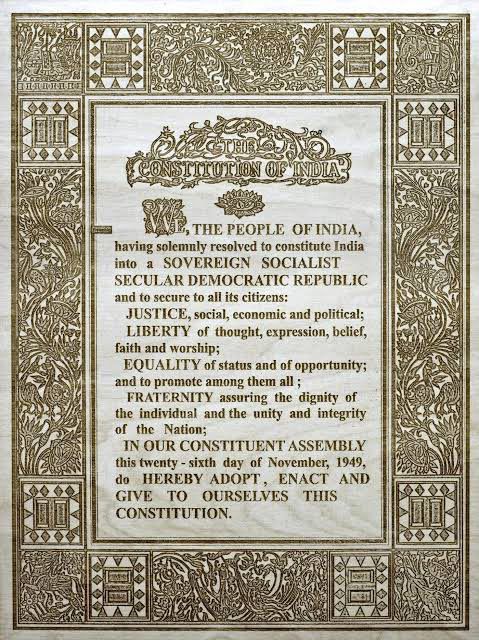 THE
CONSTITUTION OF INDIA
WE, THE PEOPLE OF INDIA,
having solemnly resolved to constitute India
into a SOVEREIGN SOCIALIST
SECULAR DEMOCRATIC REPUBLIC
and to secure to all its citizens:
JUSTICE, social, economic and political;
LIBERTY of thought, expression, belief,
faith and worship;
EQUALITY of status and of opportunity;
and to promote among them all ;
FRATERNITY assuring the dignity of
the individual and the unity and integrity
of the Nation;
IN OUR CONSTITUENT ASSEMBLY
this twenty - sixth day of November, 1949,
do HEREBY ADOPT, ENACT AND
GIVE TO OURSELVES THIS
CONSTITUTION.